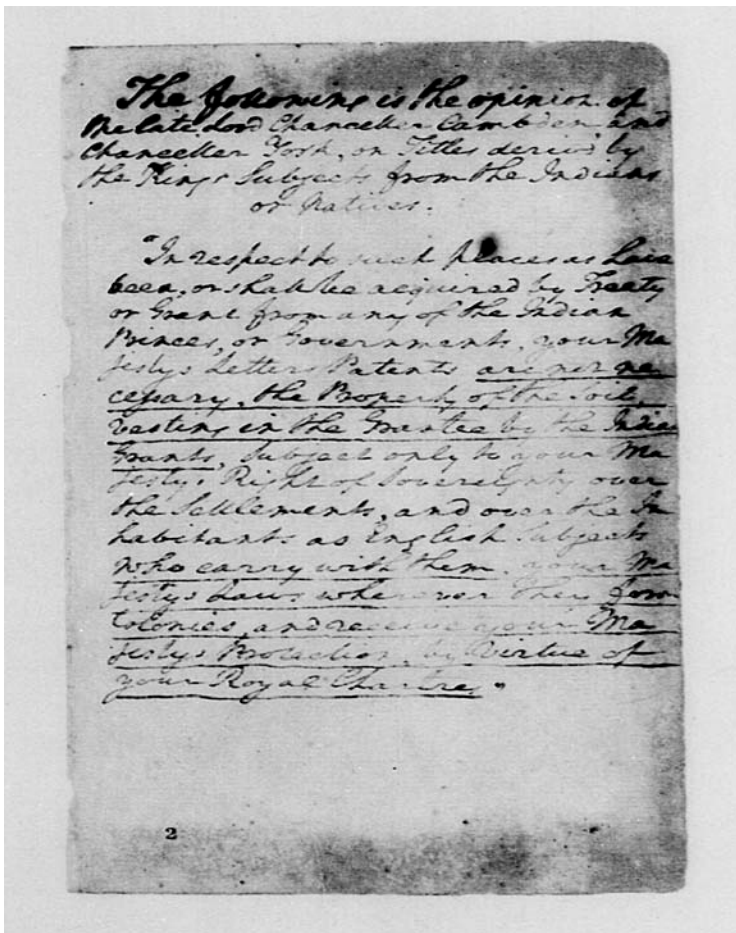 The following is the opinion of
the late Lord Chancellor Cambden and
Chancellor York, on Titles derived by
the Kings Subjects from the Indians
or Natives.
"In respect to such places as have
been, or shall be acquired by Treaty
or Grant from any of the Indian
Princes, or Governments, your Ma
jestys Letters Patents are not ne
cessary, the Property of the Soil,
vesting in the Grantee by the Indian
Grants, Subject only to your Ma
jestys Right of Sovereignty over
the Settlements, and over the In
habitants as English Subjects
who carry with them your Ma
jestys Laws wherever they form
Colonies, and receive your Ma
jestys Protection, by Virtue of
your Royal Chartres"
2